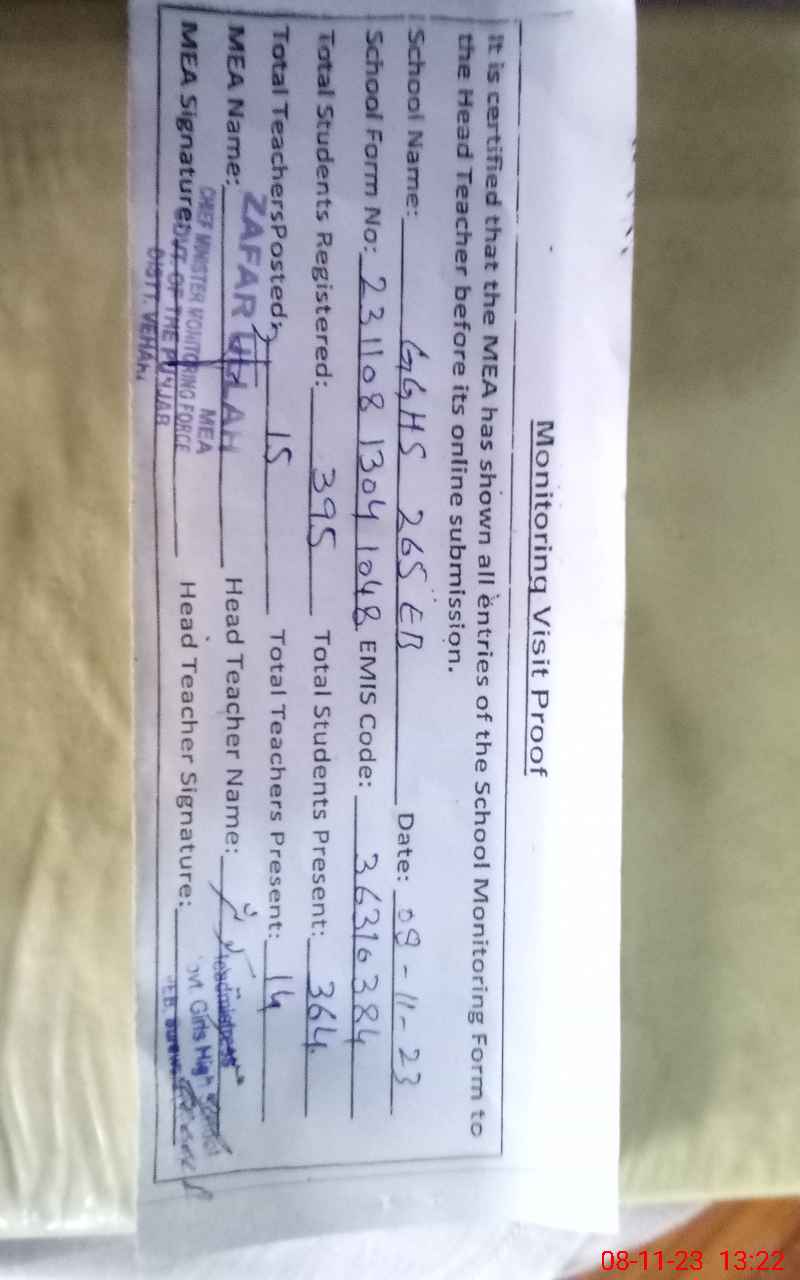 Monitoring Visit Proof
It is certified that the MEA has shown all entries of the School Monitoring Form to
the Head Teacher before its online submission.
School Name: GGHS 265 EB Date: 08-11-23
School Form No: 231108 1304 1048 EMIS Code: 36316384
Total Students Registered: 395 Total Students Present: 364
Total TeachersPosted: 15 Total Teachers Present: 14
MEA Name: ZAFAR ULLAH Head Teacher Name:
MEA Signature: Head Teacher Signature:
MEA
CHIEF MINISTER MONITORING FORCE
GOVT. OF THE PUNJAB
DISTT. VEHARI
Headmistress
Govt. Girls High School
08-11-23 13:22